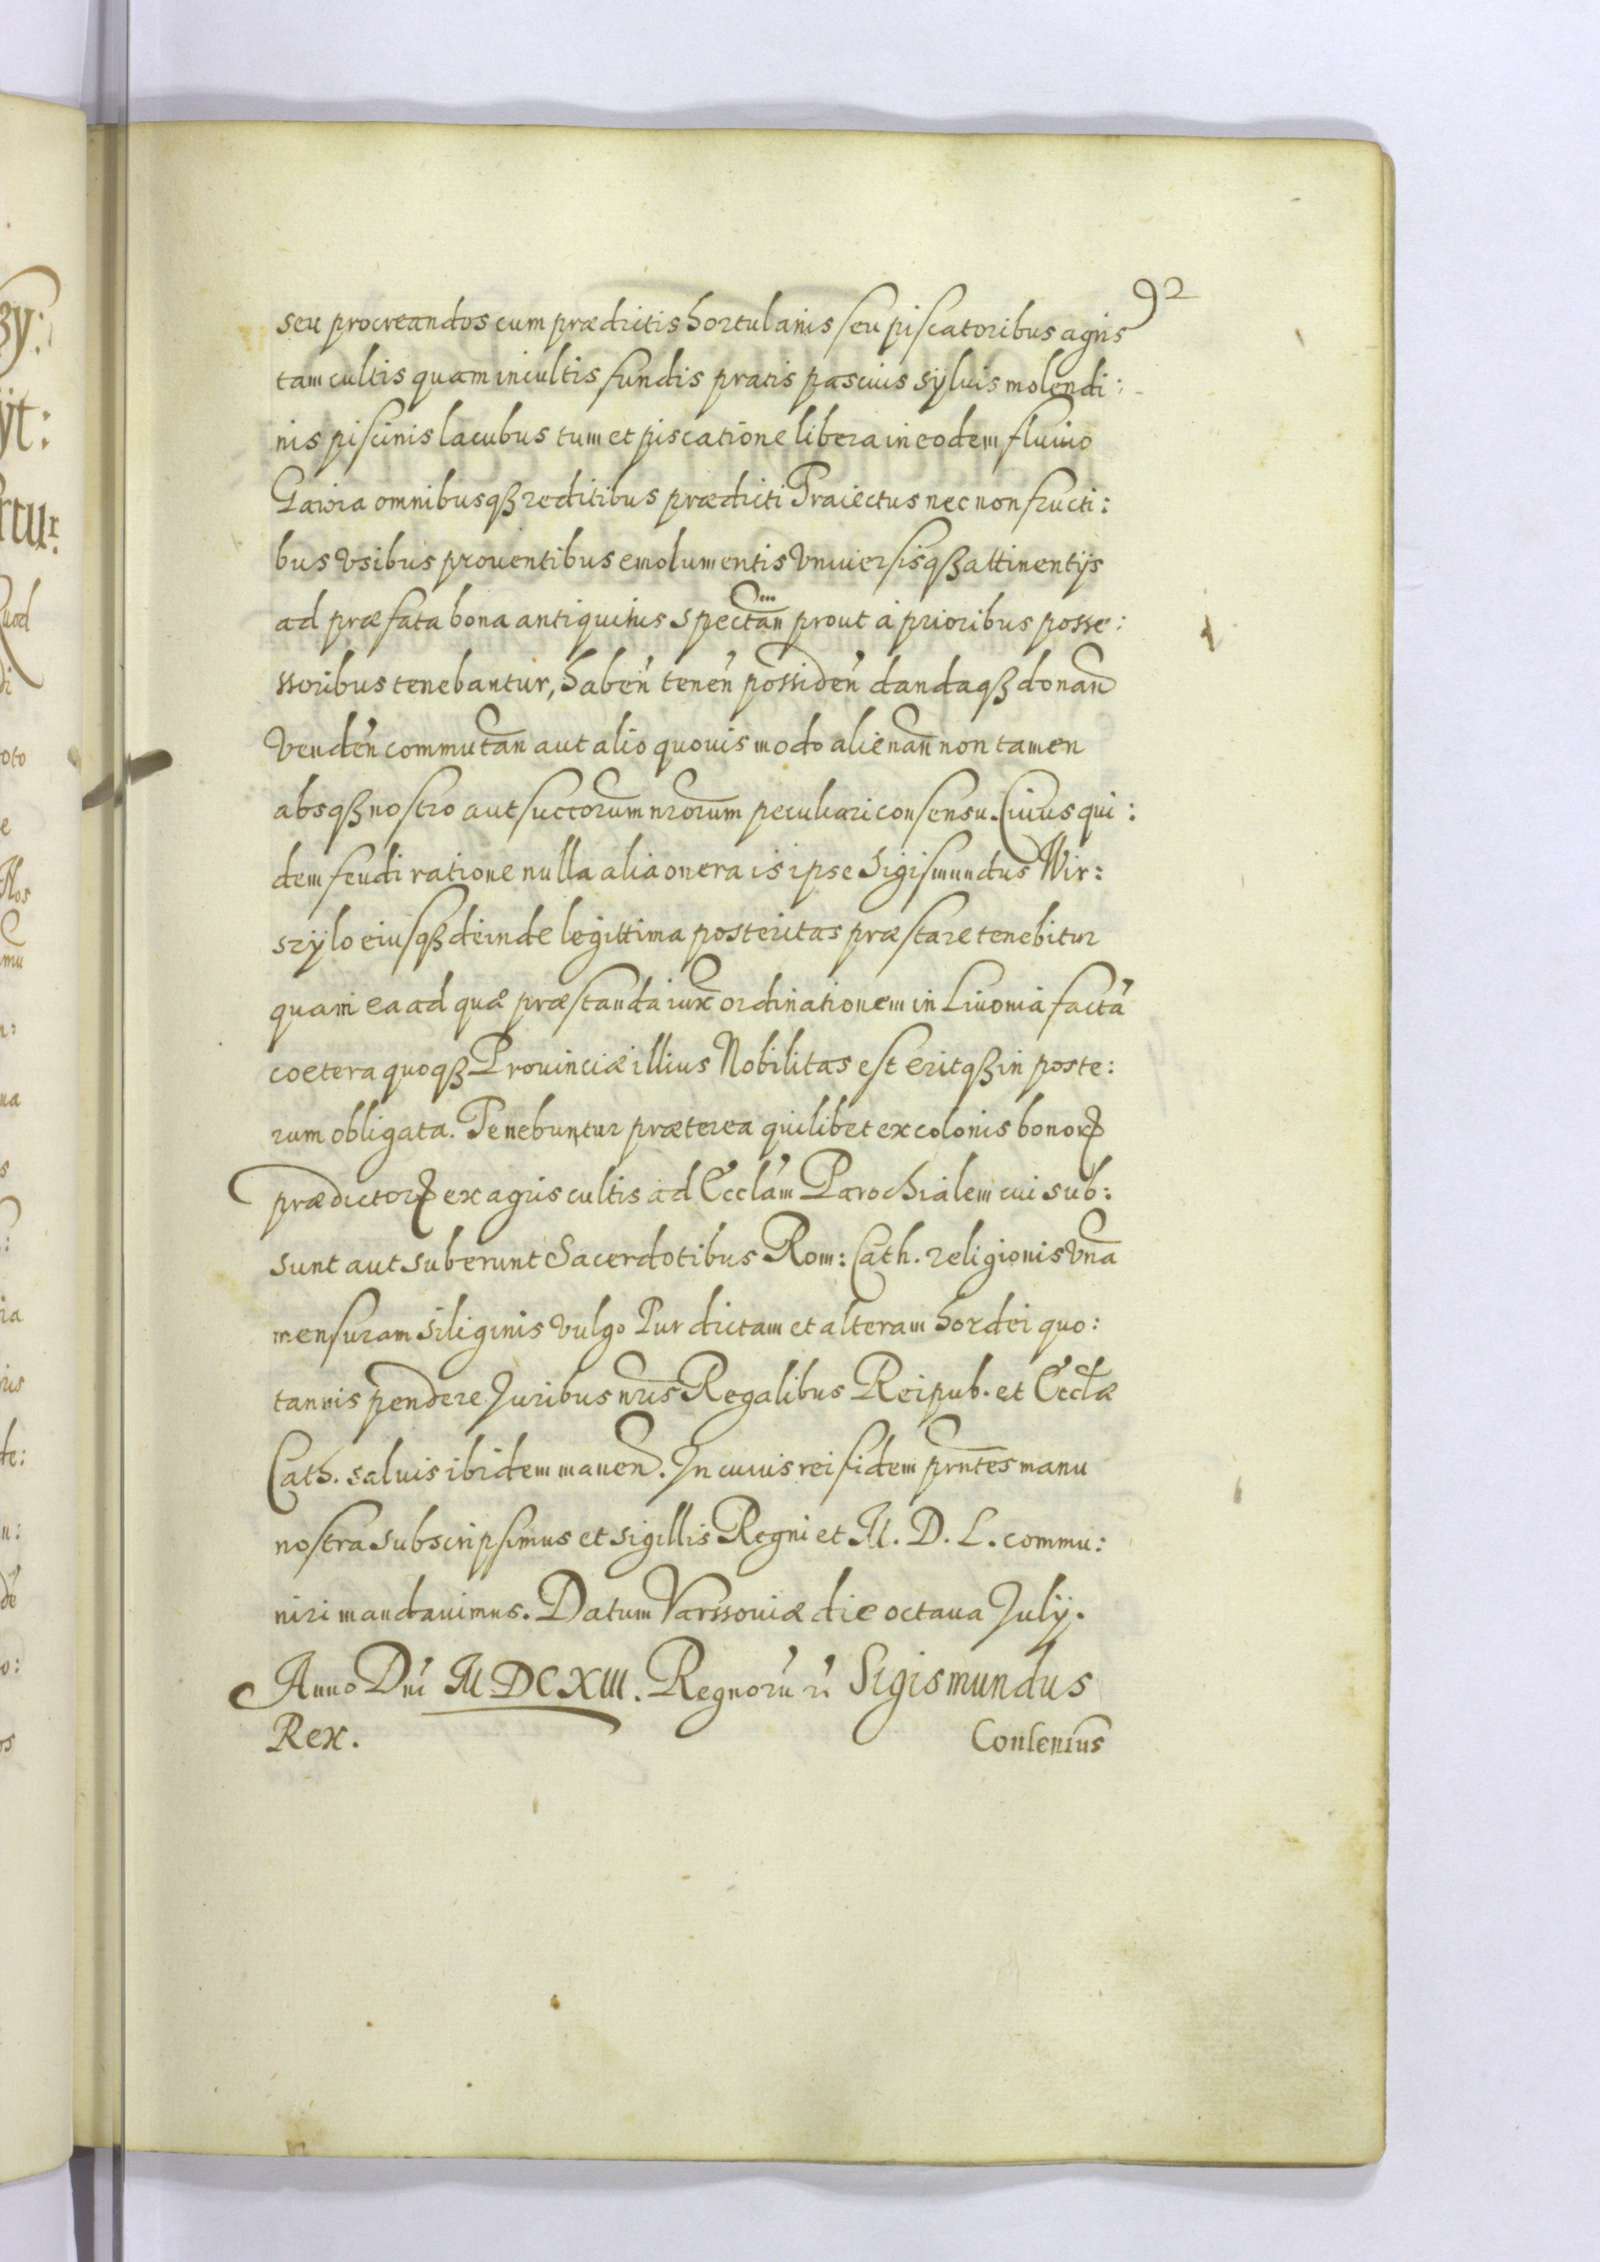 92
seu procreandos cum prædictis hortulanis seu piscatoribus agris
tam cultis quam incultis fundis pratis pascuis sylvis molendi:
nis piscinis lacubus tum et piscatione libera in eodem fluuio
Gawia omnibusqȝ reditibus prædicti Traiectus nec non fructi:
bus vsibus prouentibus emolumentis vniuersisqȝ attinentijs
ad præfata bona antiquitus spectan̄ prout à prioribus posse:
ssoribus tenebantur, haben̄ tenen̄ possiden̄ dandaqȝ donan̄
venden̄ commutan̄ aut alio quouis modo alienan̄ non tamen
absqȝ nostro aut succorum nrorum peculiari consensu. Cuius qui:
dem feudi ratione nulla alia onera is ipse Sigismundus Wir:
szÿlo eiusqȝ deinde legittima posteritas præstare tenebitur
quam ea ad quæ præstanda iuxͣ ordinationem in Liuonia factā
coetera quoqȝ Prouinciæ illius Nobilitas est eritqȝ in poste:
rum obligata. Tenebuntur præterea quilibet ex colonis bonorꝝ
prædictorꝝ ex agris cultis ad Eccl̄am Parochialem cui sub:
sunt aut suberunt Sacerdotibus Rom: Cath. religionis vnā
mensuram siliginis vulgo Pur dictam et alteram hordei quo:
tannis pendere Juribus nr̄is Regalibus Reipub. et Eccl̄æ
Cath. saluis ibidem manen̄. In cuius rei fidem prn̄tes manu
nostra subscripsimus et sigillis Regni et M. D. L. commu:
niri mandauimus. Datum Varssoviæ die octaua Julÿ.
Anno Dn̄i M DC XIII. Regnorū n̄. Sigismundus
Rex. Consensus